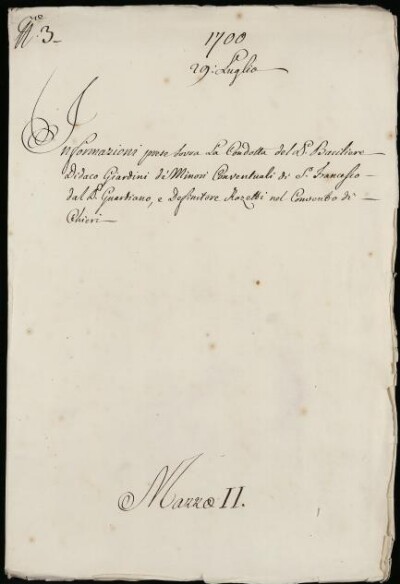 N.º 3.
1700
29: Luglio
Informazioni prese sovra La Condotta del P. Bacciliere
Didaco Giardini dé Minori Conventuali di S. Francesco
dal P. Guardiano, e Definitore Rozetti nel Convento di
Chieri
Mazzo II.